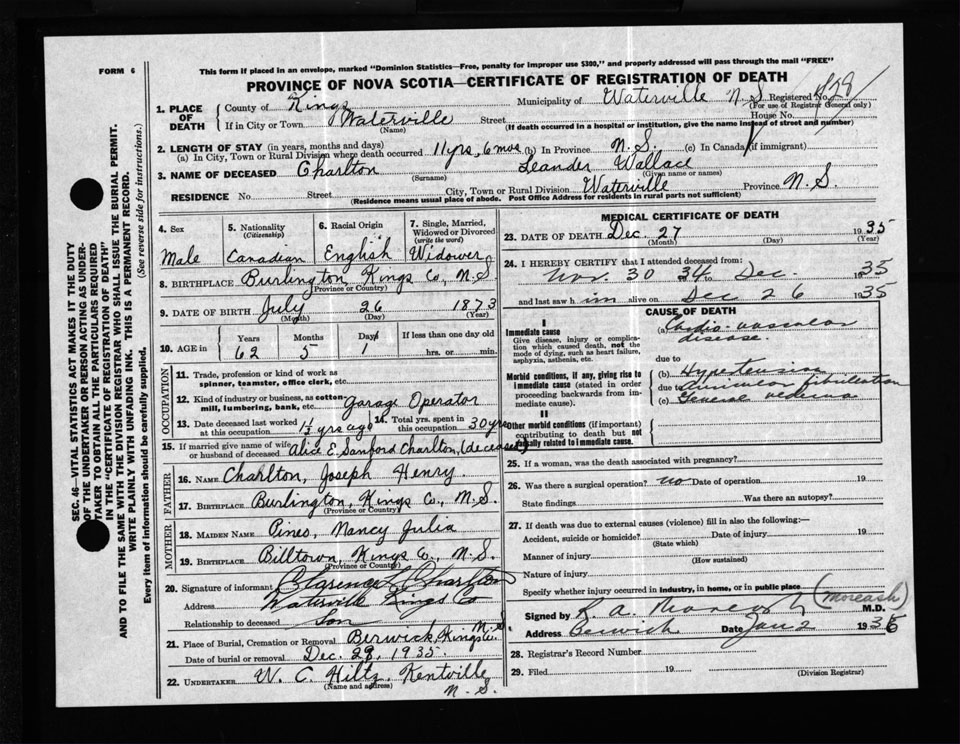 FORM 6
This form if placed in an envelope, marked "Dominion Statistics—Free, penalty for improper use $300," and properly addressed will pass through the mail "FREE"
PROVINCE OF NOVA SCOTIA—CERTIFICATE OF REGISTRATION OF DEATH
SEC. 46—VITAL STATISTICS ACT MAKES IT THE DUTY
OF THE UNDERTAKER OR PERSON ACTING AS UNDER-
TAKER TO OBTAIN ALL THE PARTICULARS REQUIRED
IN THE "CERTIFICATE OF REGISTRATION OF DEATH"
AND TO FILE THE SAME WITH THE DIVISION REGISTRAR WHO SHALL ISSUE THE BURIAL PERMIT.
WRITE PLAINLY WITH UNFADING INK. THIS IS A PERMANENT RECORD.
Every item of information should be carefully supplied. (See reverse side for instructions.)
1. PLACE OF DEATH County of Kings Municipality of Waterville N S Registered No. 428
(For use of Registrar General only)
If in City or Town Waterville Street House No.
(Name) (If death occurred in a hospital or institution, give the name instead of street and number)
2. LENGTH OF STAY (in years, months and days)
(a) In City, Town or Rural Division where death occurred 11 yrs, 6 mos (b) In Province N.S. (c) In Canada (if immigrant)
3. NAME OF DECEASED Charlton Leander Wallace
(Surname) (Given name or names)
RESIDENCE No. Street City, Town or Rural Division Waterville Province N.S.
(Residence means usual place of abode. Post Office Address for residents in rural parts not sufficient)
4. Sex 5. Nationality (Citizenship) 6. Racial Origin 7. Single, Married, Widowed or Divorced (write the word)
Male Canadian English Widower
8. BIRTHPLACE Burlington Kings Co., N.S
(Province or Country)
9. DATE OF BIRTH July 26 1873
(Month) (Day) (Year)
10. AGE in Years Months Days If less than one day old
62 5 1 hrs. or min.
OCCUPATION
11. Trade, profession or kind of work as
spinner, teamster, office clerk, etc.
12. Kind of industry or business, as cotton-
mill, lumbering, bank, etc. Garage Operator
13. Date deceased last worked at this occupation 1½ yrs ago 14. Total yrs. spent in this occupation 30 yrs
15. If married give name of wife
or husband of deceased Alice E. Sanford Charlton, (deceased)
FATHER
16. Name Charlton, Joseph Henry
17. BIRTHPLACE Burlington, Kings Co., N.S.
(Province or Country)
MOTHER
18. MAIDEN NAME Pines, Nancy Julia
19. BIRTHPLACE Billtown, Kings Co., N.S.
(Province or Country)
20. Signature of informant Clarence L Charlton
Address Waterville Kings Co N.S
Relationship to deceased Son
21. Place of Burial, Cremation or Removal Berwick, Kings Co.
Date of burial or removal Dec. 29, 1935
22. UNDERTAKER W. C. Hiltz, Kentville
(Name and address) N.S.
MEDICAL CERTIFICATE OF DEATH
23. DATE OF DEATH Dec. 27 1935
(Month) (Day) (Year)
24. I HEREBY CERTIFY that I attended deceased from:
Nov. 30 34 to Dec. 1935
and last saw h im alive on Dec 26 1935
CAUSE OF DEATH
I
Immediate cause
Give disease, injury or complica-
tion which caused death, not the
mode of dying, such as heart failure,
asphyxia, asthenia, etc.
(a) Cardio-vascular
disease.
due to
Morbid conditions, if any, giving rise to
immediate cause (stated in order
proceeding backwards from im-
mediate cause).
(b) Hypertension
due to Auricular fibrillation
(c) General oedema
II
Other morbid conditions (if important)
contributing to death but not
causally related to immediate cause.
25. If a woman, was the death associated with pregnancy?
26. Was there a surgical operation? no Date of operation 19
State findings Was there an autopsy?
27. If death was due to external causes (violence) fill in also the following:—
Accident, suicide or homicide? Date of injury 19
(State which)
Manner of injury
(How sustained)
Nature of injury
Specify whether injury occurred in industry, in home, or in public place
Signed by R. A. Moreash (Moreash) M.D.
Address Berwick Date Jan 2 1936
28. Registrar's Record Number
29. Filed 19
(Division Registrar)